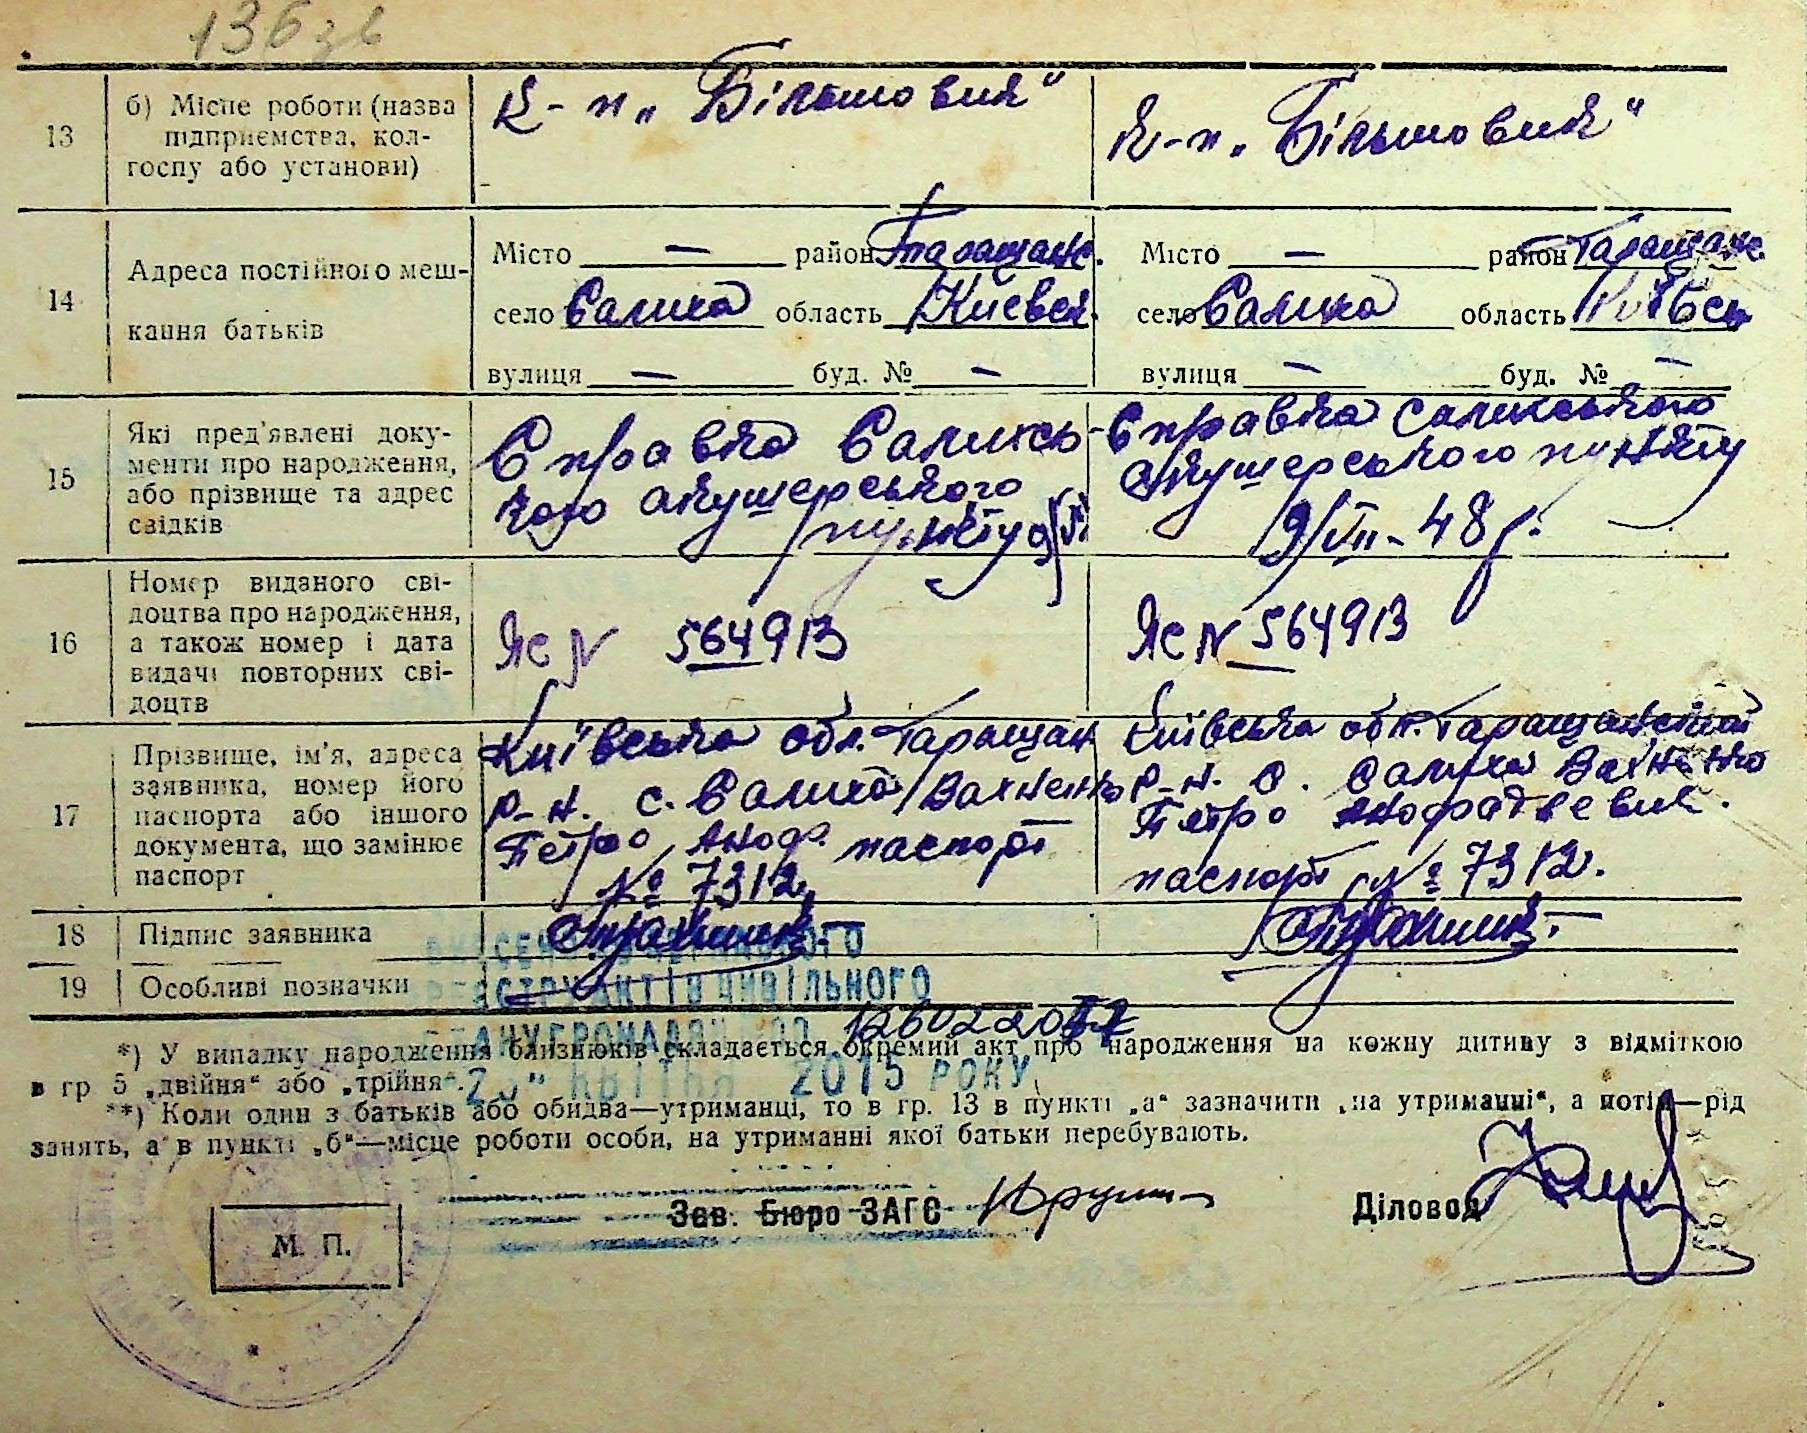 136 зв
13
б) Місце роботи (назва
підприємства, кол-
госпу або установи)
К-п „Більшовик"
К-п „Більшовик"
14
Адреса постійного меш-
кання батьків
Місто — район Таращанс.
село Салиха область Київськ.
вулиця — буд. № —
Місто — район Таращанс.
село Салиха область Київськ
вулиця — буд. № —
15
Які пред'явлені доку-
менти про народження,
або прізвище та адрес
свідків
Справка Сались-
кого акушерського
пункту 9/VI
Справка Салиського
акушерського пункту
9/VII-48 р.
16
Номер виданого сві-
доцтва про народження,
а також номер і дата
видачі повторних сві-
доцтв
ЯС N 564913
ЯС N 564913
17
Прізвище, ім'я, адреса
заявника, номер його
паспорта або іншого
документа, що замінює
паспорт
Київська обл. Таращан
р-н. с. Салиха Вахненко
Петро Аноф. паспорт
№ 7312,
Київська обл. Таращанський
р-н. с. Салиха Вахненко
Петро
паспорт № 7312.
18
Підпис заявника
19
Особливі позначки
ДЕРЖАВНОГО
РЕЄСТРУ АКТІВ ЦИВІЛЬНОГО
СТАНУ ГРОМАДЯН
КВІТНЯ 2015 РОКУ
*) У випадку народження близнюків складається окремий акт про народження на кожну дитину з відміткою
в гр 5 „двійня“ або „трійня“.
**) Коли один з батьків або обидва—утриманці, то в гр. 13 в пункті „а“ зазначити „на утриманні“, а потім—рід
занять, а в пункті „б“—місце роботи особи, на утриманні якої батьки перебувають.
М. П.
Зав. Бюро ЗАГС
Діловод